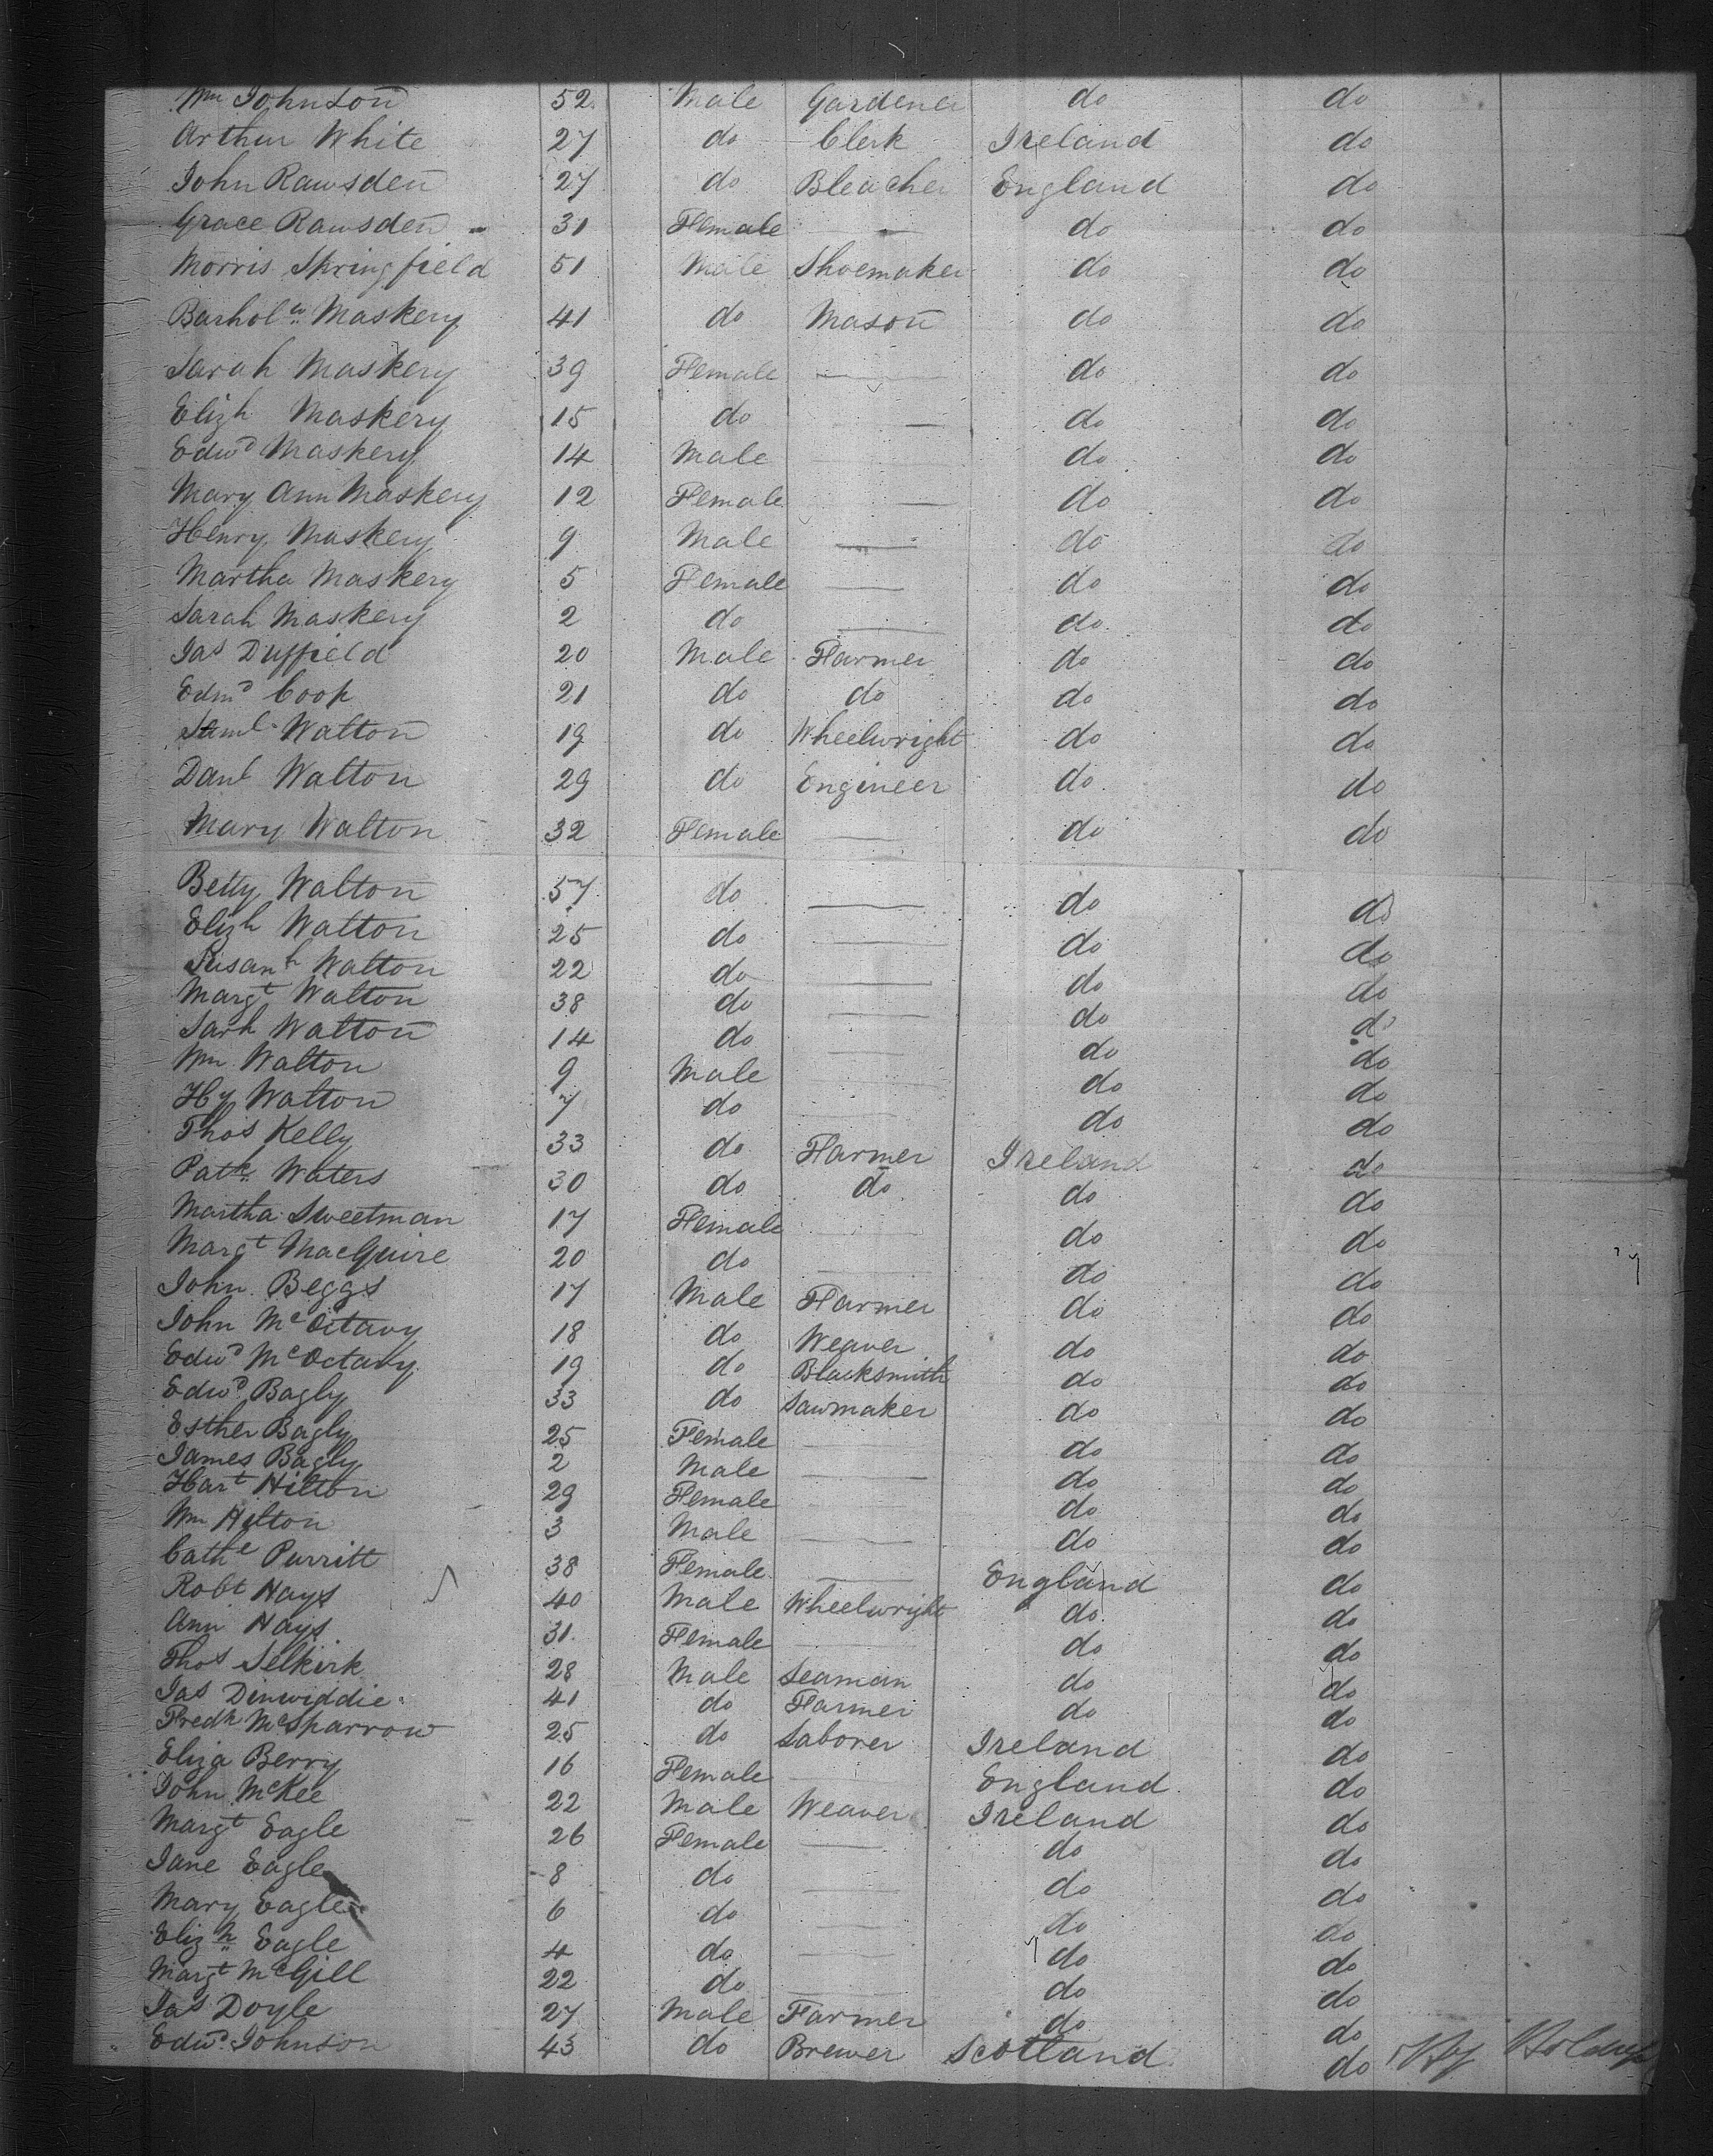 Wm Johnson 52 Male Gardener do do
Arthur White 27 do Clerk Ireland do
John Rawsden 27 do Bleacher England do
Grace Rawsden 31 Female — do do
Morris Springfield 51 Male Shoemaker do do
Barholw Maskery 41 do Mason do do
Sarah Maskery 39 Female — do do
Elizh Maskery 15 do — do do
Edwd Maskery 14 Male — do do
Mary Ann Maskery 12 Female — do do
Henry Maskery 9 Male — do do
Martha Maskery 5 Female — do do
Sarah Maskery 2 do — do do
Jas Duffield 20 Male Farmer do do
Edmd Cook 21 do do do do
Saml Walton 19 do Wheelwright do do
Danl Walton 29 do Engineer do do
Mary Walton 32 Female — do do
Betty Walton 57 do — do do
Elizh Walton 25 do — do do
Susanh Walton 22 do — do do
Margt Walton 38 do — do do
Sarh Walton 14 do — do do
Wm Walton 9 Male — do do
Hy Walton 7 do — do do
Thos Kelly 33 do Farmer Ireland do
Patk Waters 30 do do do do
Martha Sweetman 17 Female — do do
Margt MacGuire 20 do — do do
John Beggs 17 Male Farmer do do
John McOctavy 18 do Weaver do do
Edwd McOctavy 19 do Blacksmith do do
Edwd Bagly 33 do Sawmaker do do
Esther Bagly 25 Female — do do
James Bagly 2 Male — do do
Hart Hilton 29 Female — do do
Wm Hilton 3 Male — do do
Cathe Purritt 38 Female — England do
Robt Hays 40 Male Wheelwright do do
Ann Hays 31 Female — do do
Thos Selkirk 28 Male Seaman do do
Jas Dinwiddie 41 do Farmer do do
Fredk McSparrow 25 do Laborer Ireland do
Eliza Berry 16 Female — England do
John McKee 22 Male Weaver Ireland do
Margt Eagle 26 Female — do do
Jane Eagle 8 do — do do
Mary Eagle 6 do — do do
Elizh Eagle 4 do — do do
Margt McGill 22 do — do do
Jas Doyle 27 Male Farmer do do
Edwd Johnson 43 do Brewer Scotland do Hy